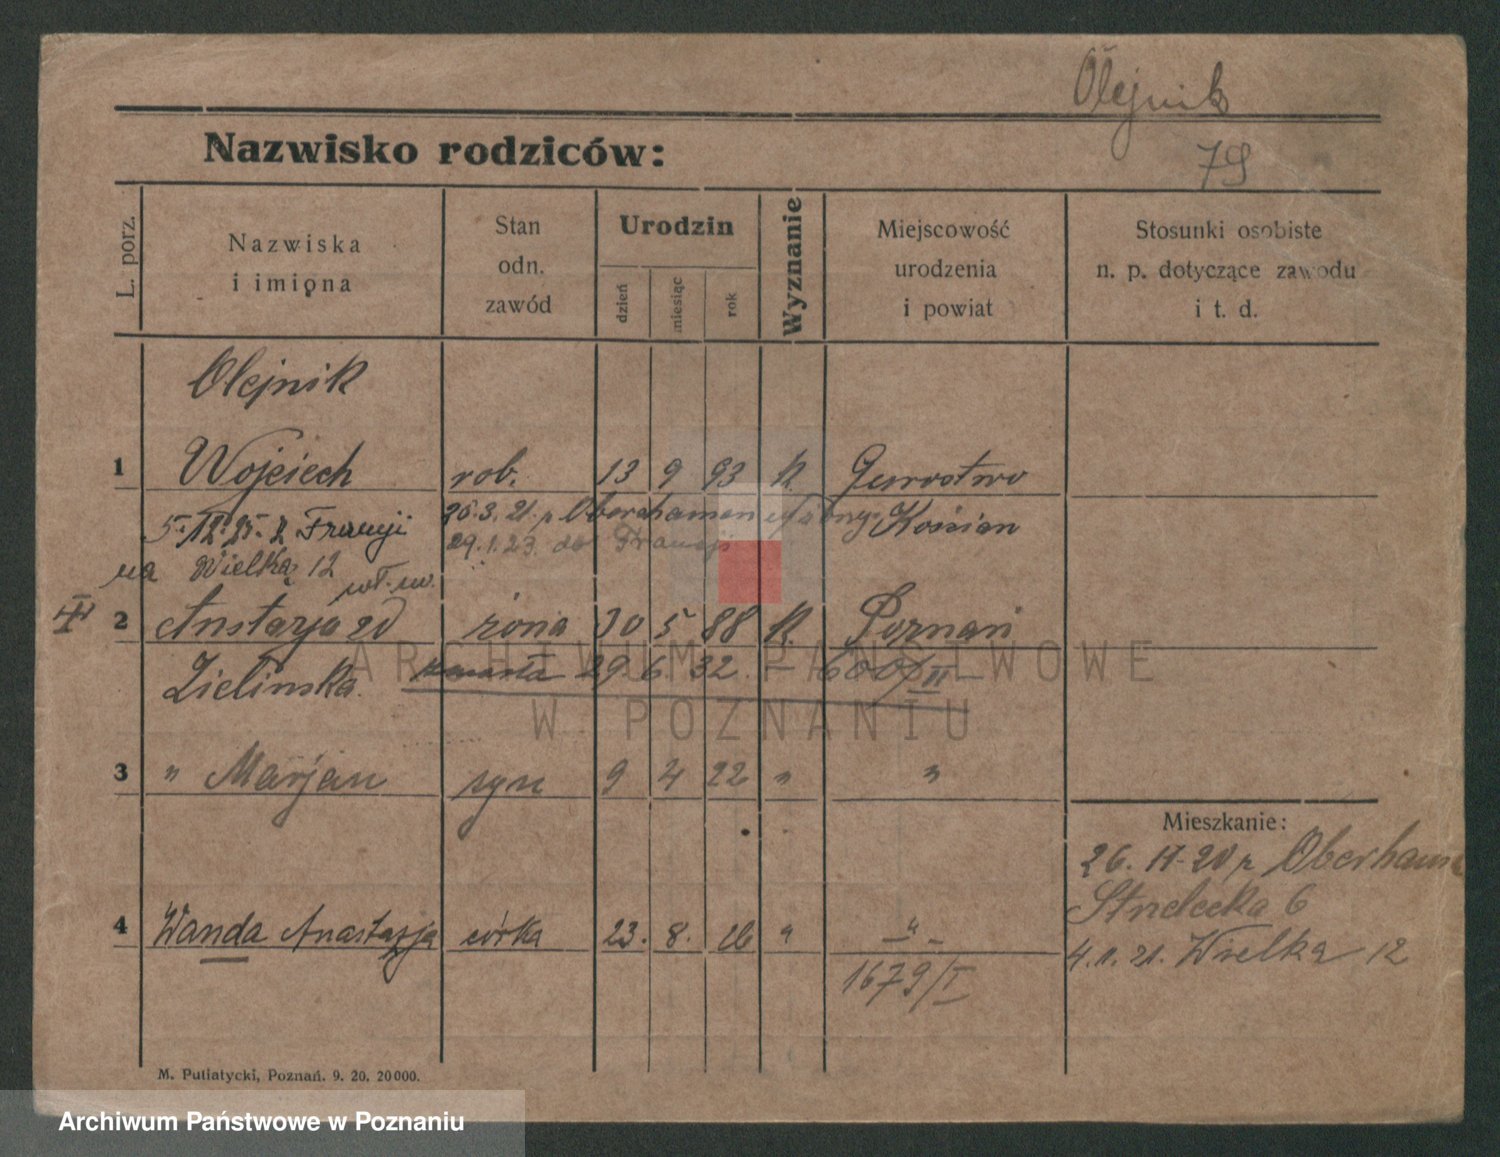 Olejnik
79
Nazwisko rodziców:
L. porz.
Nazwiska
i imiona
Stan
odn.
zawód
Urodzin
dzień
miesiąc
rok
Wyznanie
Miejscowość
urodzenia
i powiat
Stosunki osobiste
n. p. dotyczące zawodu
i t. d.
Olejnik
1 Wojciech rob. 13 9 93 K
26.3.21. p Oberhausen
Kościan
5. 12. 25. z Francji
29.1.23. do Francji
na Wielką 12
2 Anstazja zd żona 30 5 88 K. Poznań
Zielinska zmarła 29 6 32. – 600/II
ARCHIWUM PAŃSTWOWE
W POZNANIU
3 " Marjan syn 9 4 22 " "
Mieszkanie:
Strzelecka 6
4 Wanda Anastazja córka 23. 8. 26 " "
4.1.21. Wielka 12
1679/I
M. Putiatycki, Poznań. 9. 20. 20000.
Archiwum Państwowe w Poznaniu